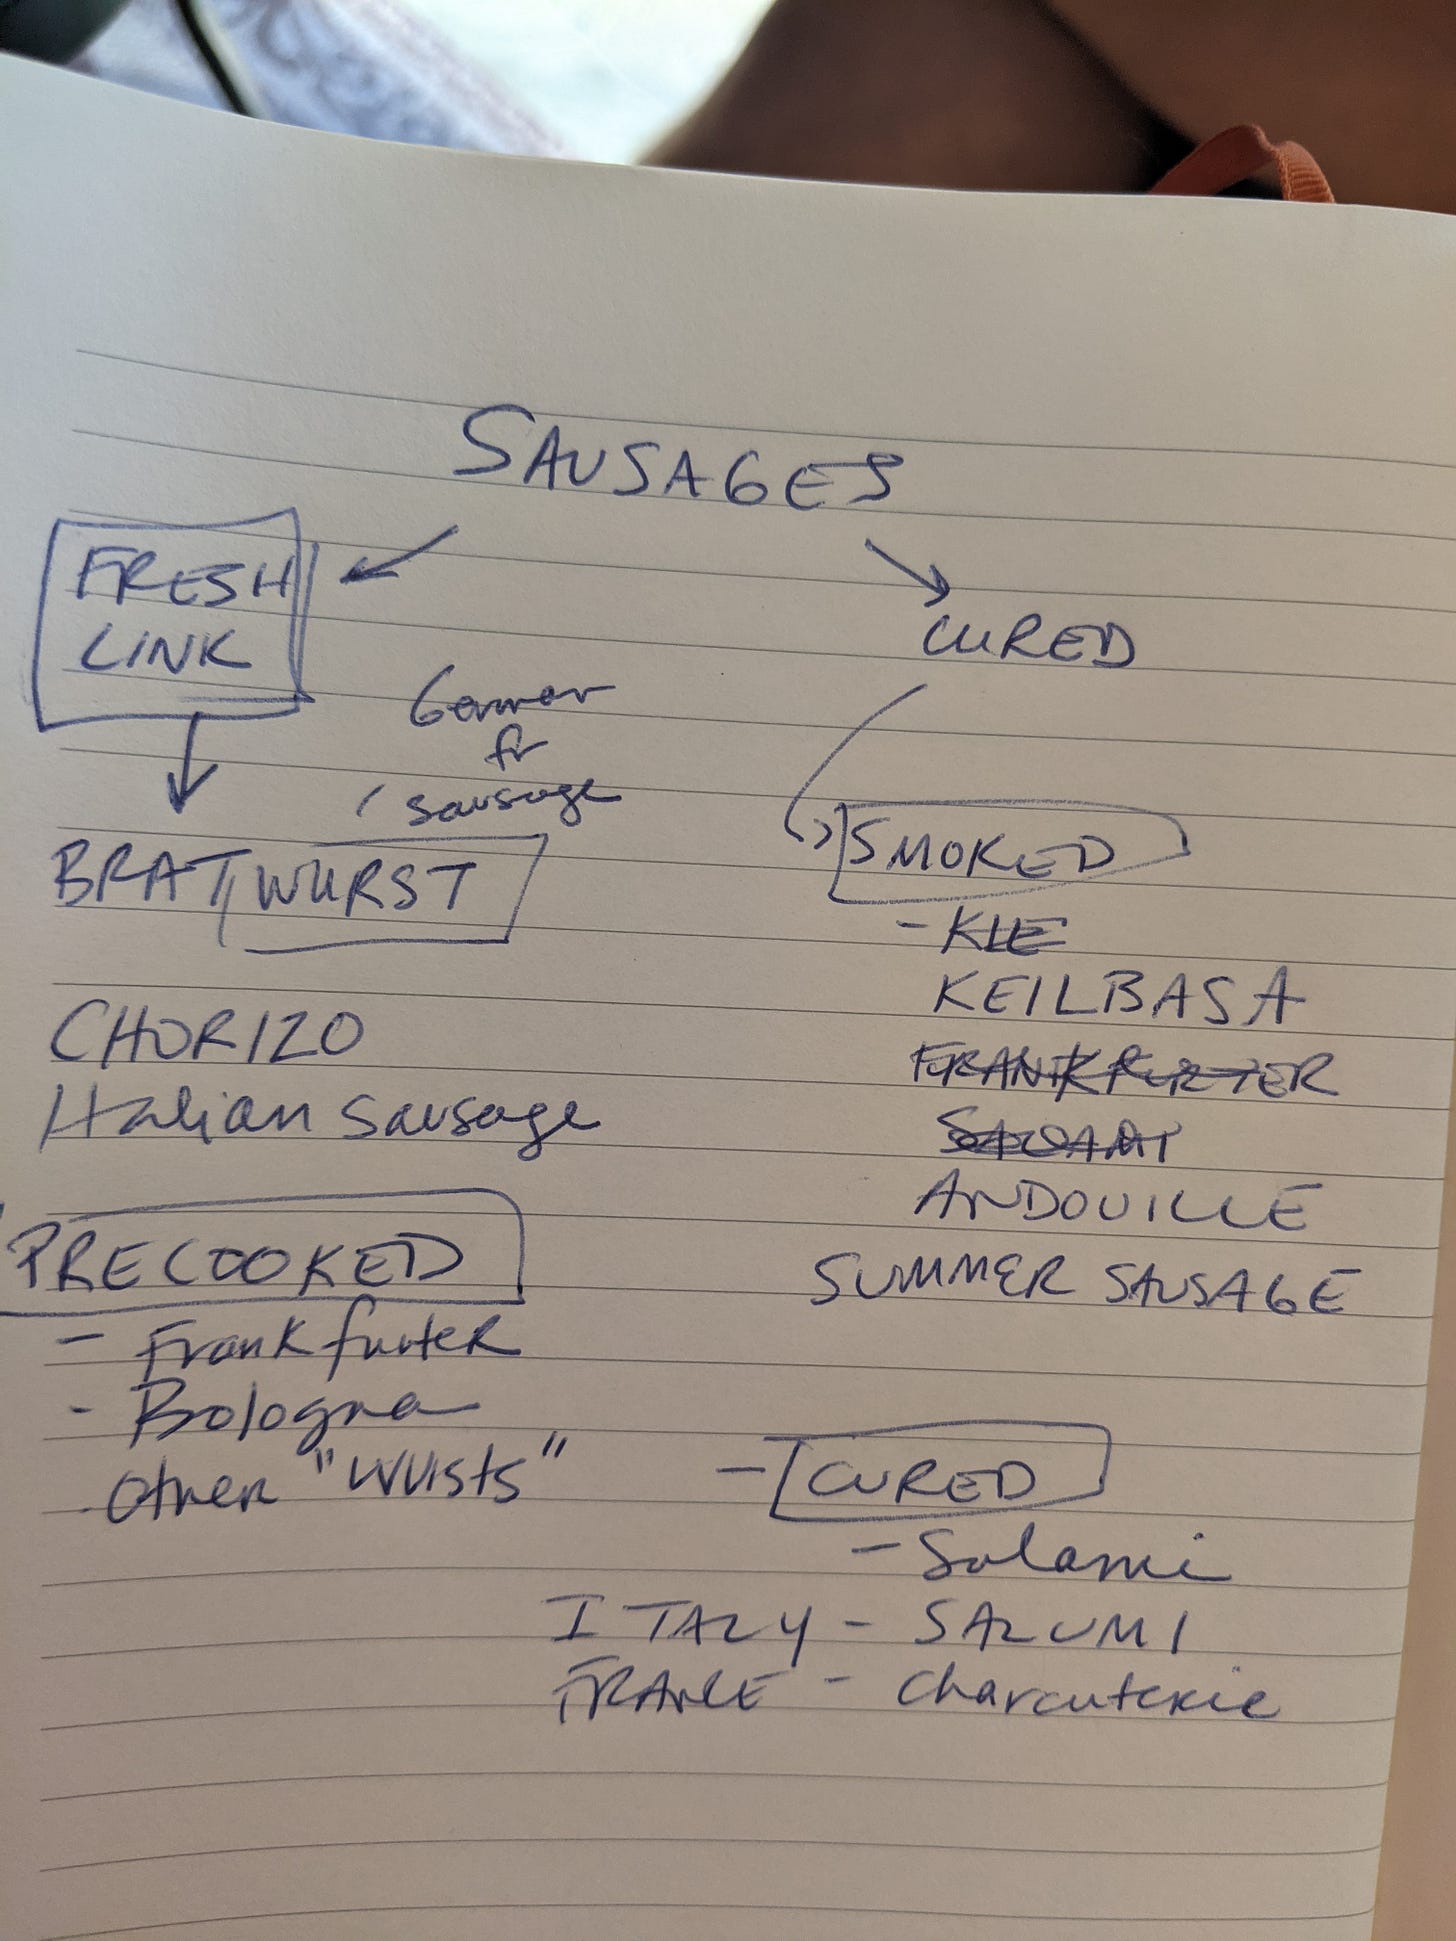 SAUSAGES
FRESH
LINK
German
fr
sausage
BRATWURST
CHORIZO
Italian Sausage
PRECOOKED
- Frankfurter
- Bologna
- other "wursts"
CURED
SMOKED
- KIE
KEILBASA
FRANKFURTER
SALAMI
ANDOUILLE
SUMMER SAUSAGE
- CURED
- Salami
ITALY - SALUMI
FRANCE - Charcuterie